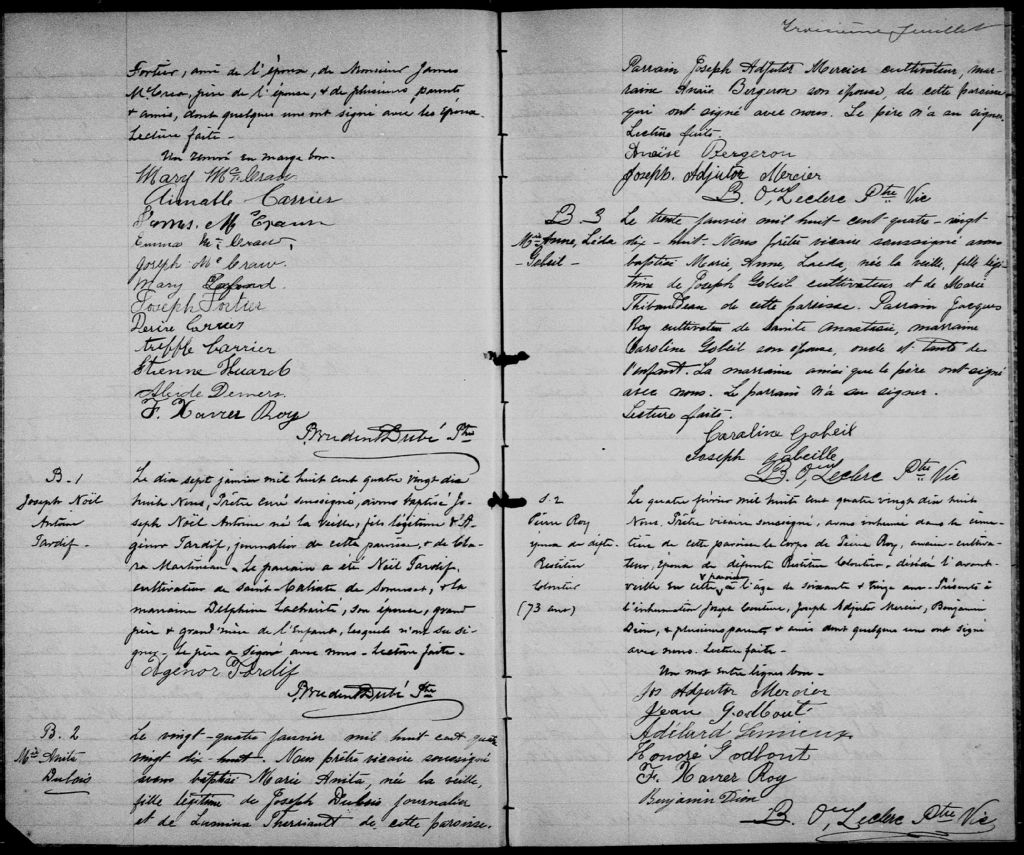 Fortier, ami de l'époux, de Monsieur James
McCraw, père de l'épouse, & de plusieurs parents
& amis, dont quelques uns ont signé avec les époux.
Lecture faite -
Un renvoi en marge bon -
Mary McCraw
Aimable Carrier
James McCraw
Emma McCraw
Joseph McCraw
Mary
Joseph Fortier
Desire Carrier
treffle Carrier
Etienne Huard
Alcide Demers
F. Xavier Roy
Prudent Dubé Ptre
B. 1
Joseph Noël
Antoine
Tardif
Le dix sept janvier mil huit cent quatre vingt dix
huit Nous, Prêtre curé soussigné, avons baptisé Jo-
seph Noël Antoine né la veille, fils légitime d'A-
génor Tardif, journalier de cette paroisse, & de Cla-
ra Martineau. Le parrain a été Noël Tardif,
cultivateur de Saint-Calixte de Somerset, & la
marraine Delphine Lacharité, son épouse, grand
père & grand'mère de l'Enfant, lesquels n'ont su si-
gner. Le père a signé avec nous - Lecture faite -
Agenor Tardif
Prudent Dubé Ptre
B. 2
Mie Anita
Dubois
Le vingt-quatre janvier mil huit cent quatre
vingt dix-huit. Nous prêtre vicaire soussigné
avons baptisé Marie Anita, née la veille,
fille légitime de Joseph Dubois journalier
et de Lumina Therriault de cette paroisse.
Troisième feuillet
Parrain Joseph Adjutor Mercier cultivateur, mar-
raine Anaïs Bergeron son épouse, de cette paroisse
qui ont signé avec nous. Le père n'a su signer.
Lecture faite.
Anaïse Bergeron
Joseph. Adjutor Mercier
B. O, Leclerc Ptre Vic
B 3
Mie Anne, Léda
Gobeil -
Le trente janvier mil huit cent quatre-vingt
dix-huit. Nous prêtre vicaire soussigné avons
baptisé Marie, Anne, Laeda, née la veille, fille légi-
time de Joseph Gobeil cultivateur et de Marie
Thibaudeau de cette paroisse. Parrain Jacques
Roy cultivateur de Sainte marraine
Caroline Gobeil son épouse, oncle et tante de
l'enfant. La marraine ainsi que le père ont signé
avec nous. Le parrain n'a su signer.
Lecture faite.
Caroline Gobeil
Joseph Gobeille
B. O, Leclerc Ptre Vic
S. 2
Pierre Roy
époux de défte
Restitue
Cloutier
(73 ans)
Le quatre février mil huit cent quatre vingt dix huit
Nous, Prêtre vicaire soussigné, avons inhumé dans le cime-
tière de cette paroisse le corps de Pierre Roy, ancien cultiva-
teur, époux de défunte Restitue Cloutier, décédé l'avant-
paroisse
veille en cette à l'âge de soixante & treize ans. Présents à
l'inhumation Joseph Couture, Joseph Adjutor Mercier, Benjamin
Dion, & plusieurs parents & amis dont quelques uns ont signé
avec nous. Lecture faite -
Un mot entre lignes bon -
Jos Adjutor Mercier
Jean Godbout
Adélard Lemieux
Honoré Godbout
F. Xavier Roy
Benjamin Dion
B. O, Leclerc Ptre Vic